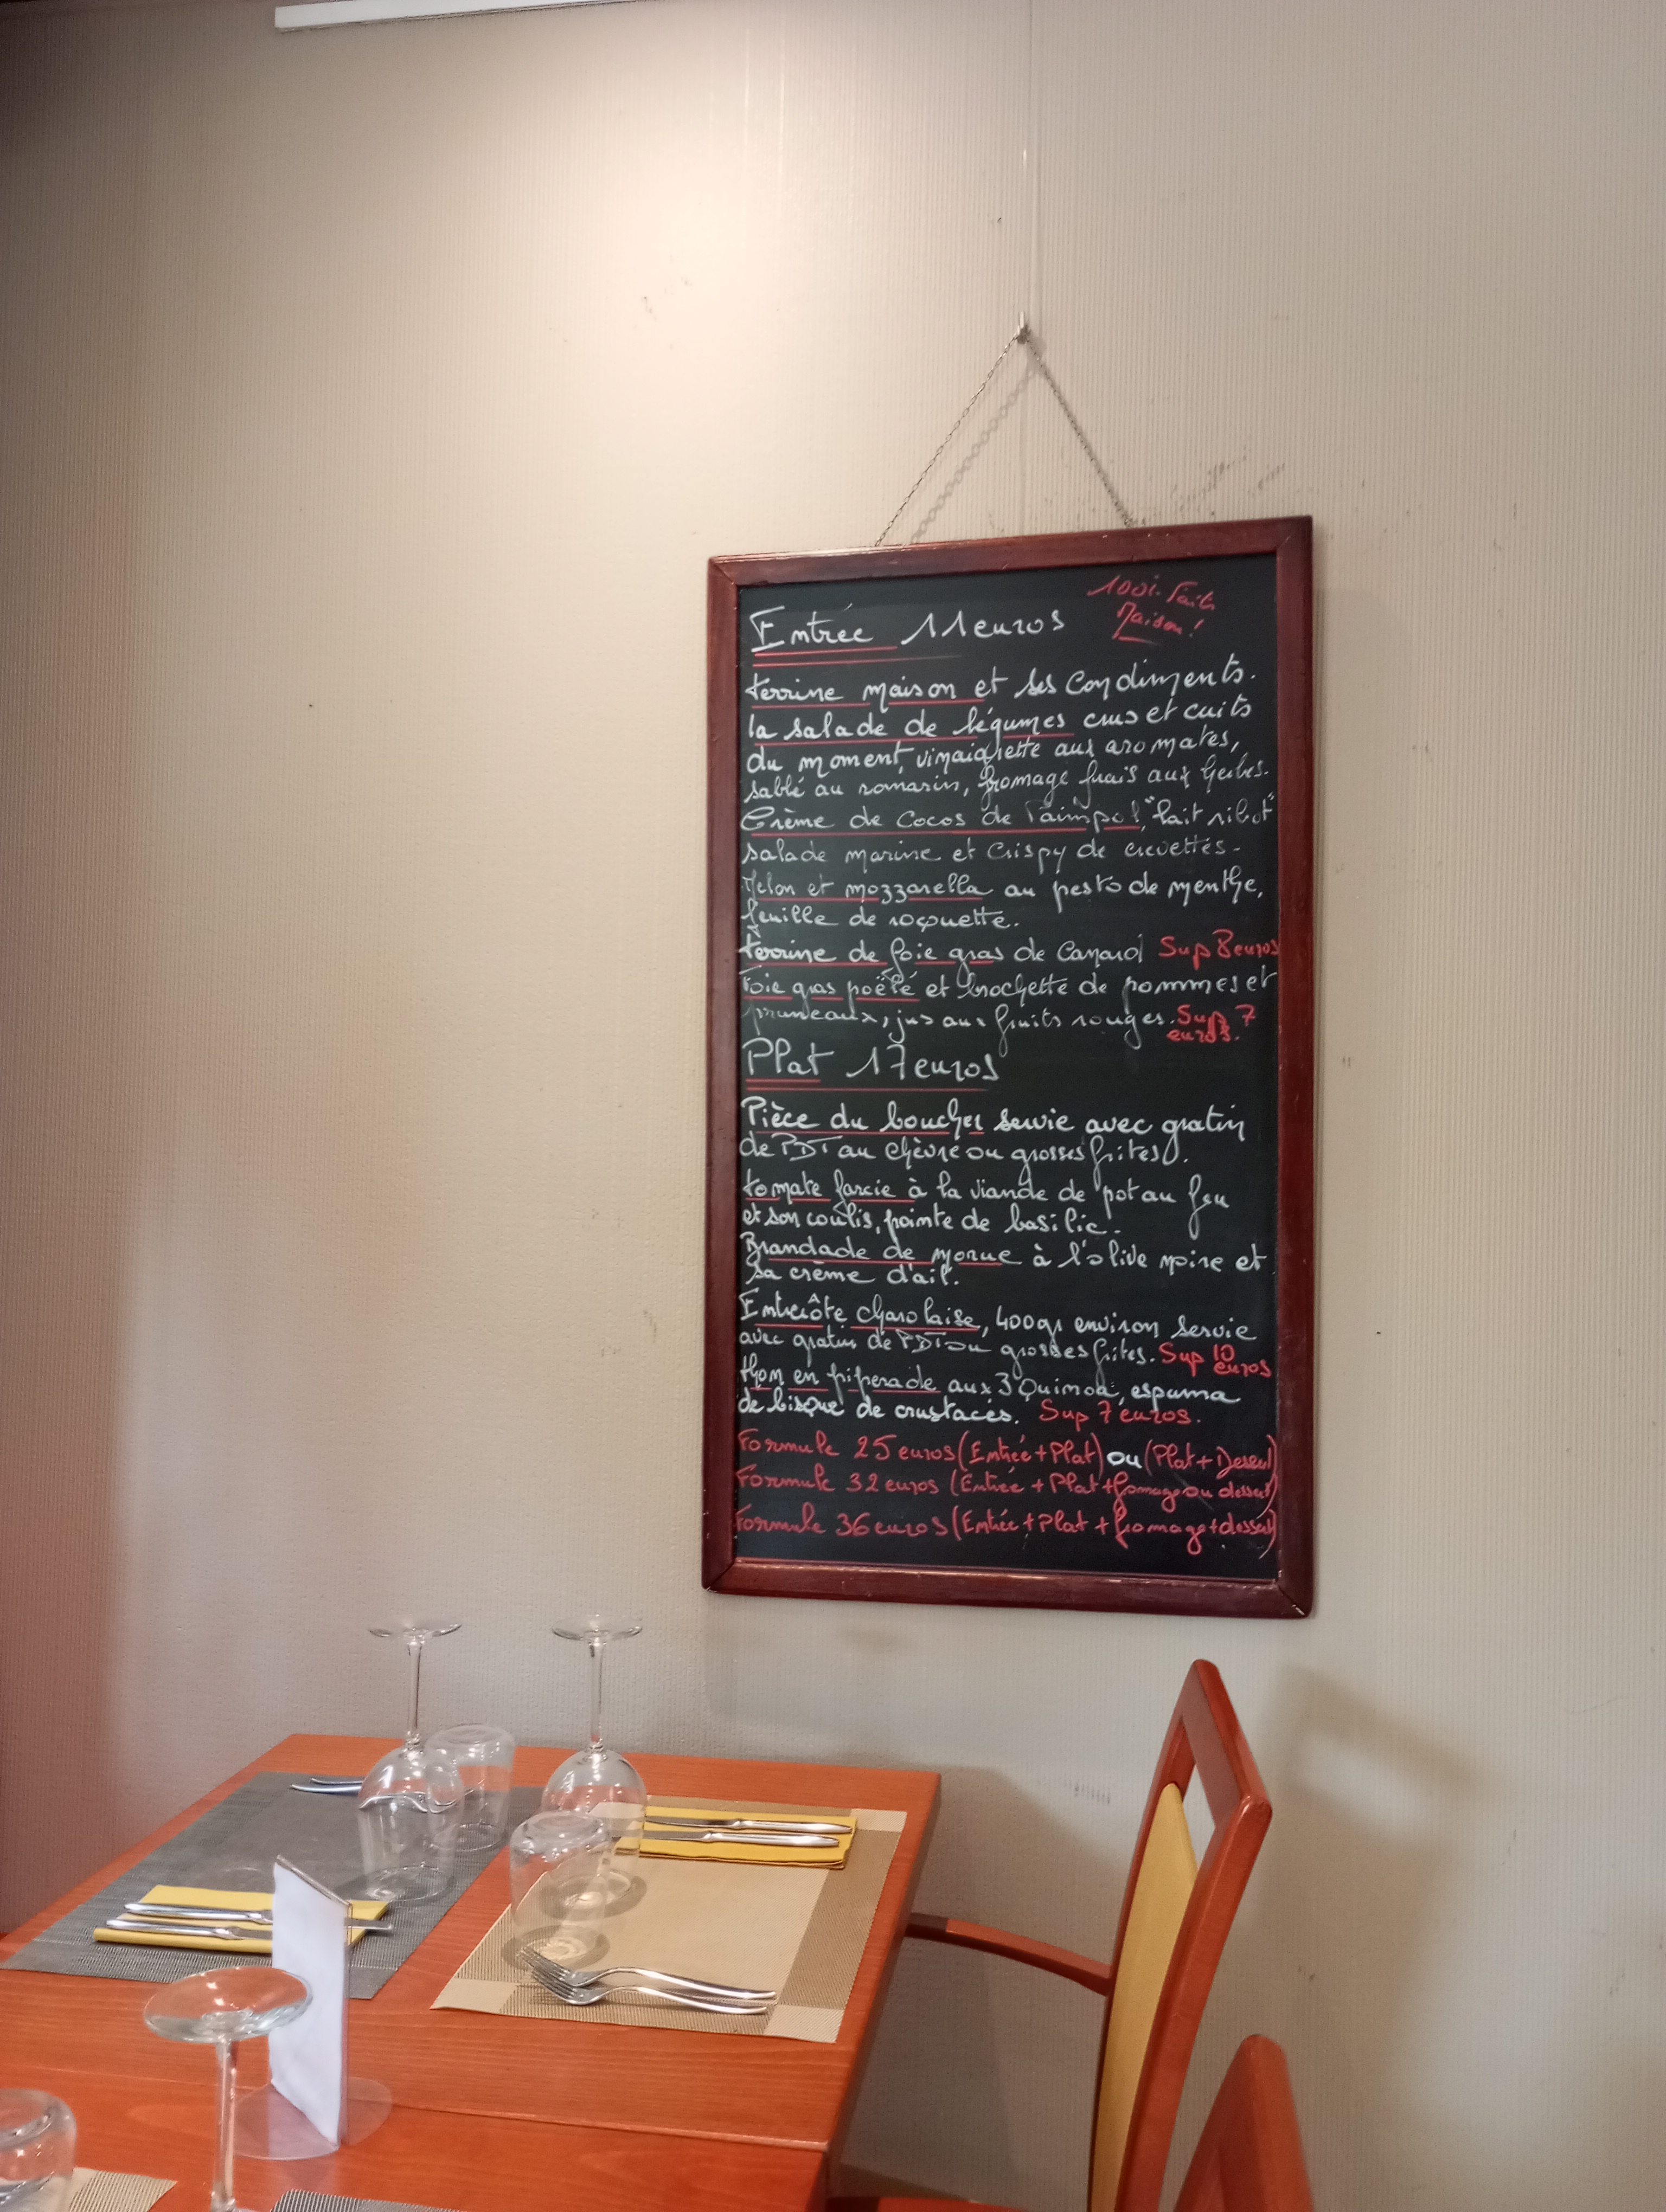 100% Fait
Maison !
Entrée 11 euros
terrine maison et ses condiments.
la salade de légumes crus et cuits
du moment, vinaigrette aux aromates,
sablé au romarin, fromage frais aux herbes.
Crème de Cocos de Paimpol, "lait ribot"
salade marine et crispy de crevettes.
Melon et mozzarella au pesto de menthe,
feuille de roquette.
terrine de foie gras de Canard Sup 8 euros
Foie gras poêlé et brochette de pommes et
pruneaux, jus aux fruits rouges. Sup 7
euros.
Plat 17 euros
Pièce du boucher servie avec gratin
de PDT au chèvre ou grosses frites.
tomate farcie à la viande de pot au feu
et son coulis, pointe de basilic.
Brandade de morue à l'olive noire et
sa crème d'ail.
Entrecôte charolaise, 400gr environ servie
avec gratin de PDT ou grosses frites. Sup 10
euros
thon en piperade aux 3 Quinoa, espuma
de bisque de crustacés. Sup 7 euros.
Formule 25 euros (Entrée + Plat) ou (Plat + Dessert)
Formule 32 euros (Entrée + Plat + fromage ou dessert)
Formule 36 euros (Entrée + Plat + fromage + dessert)